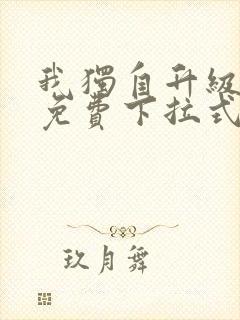 我獨自升級
免費下拉式
玖月舞